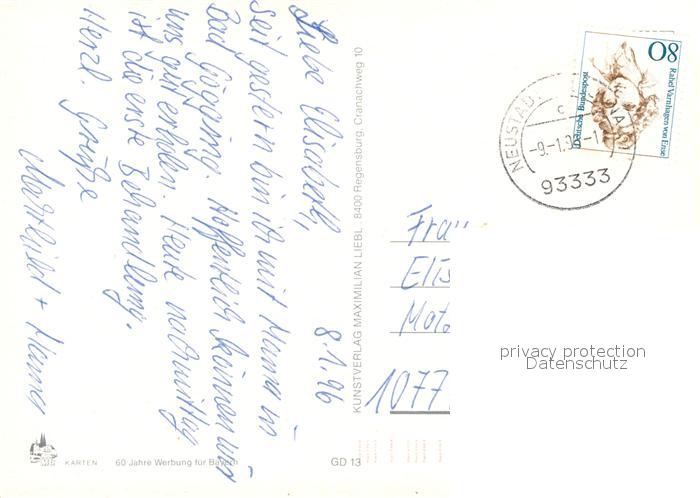 8.1.96
Liebe Elisabeth,
seit gestern bin ich mit Mama in
Bad Gögging. Hoffentlich können wir
uns gut erholen. Heute nachmittag
ist die erste Behandlung.
Herzl. Grüße
Mathild + Mama
KUNSTVERLAG MAXIMILIAN LIEBL · 8400 Regensburg, Cranachweg 10
80
Rahel Varnhagen von Ense
Deutsche Bundespost
NEUSTADT
c
-9.-1.9 -1
93333
Frau
Elis
1077
privacy protection
Datenschutz
KARTEN
60 Jahre Werbung für Bayern
GD 13